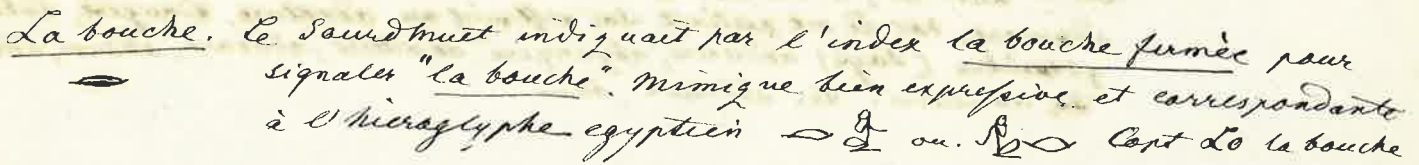 La bouche. Le Sourdmuet indiquait par l'index la bouche fermée pour
signaler "la bouche". Mimique bien expressive. et correspondante
à l'hieroglyphe egyptien ou. Copt Lo la bouche